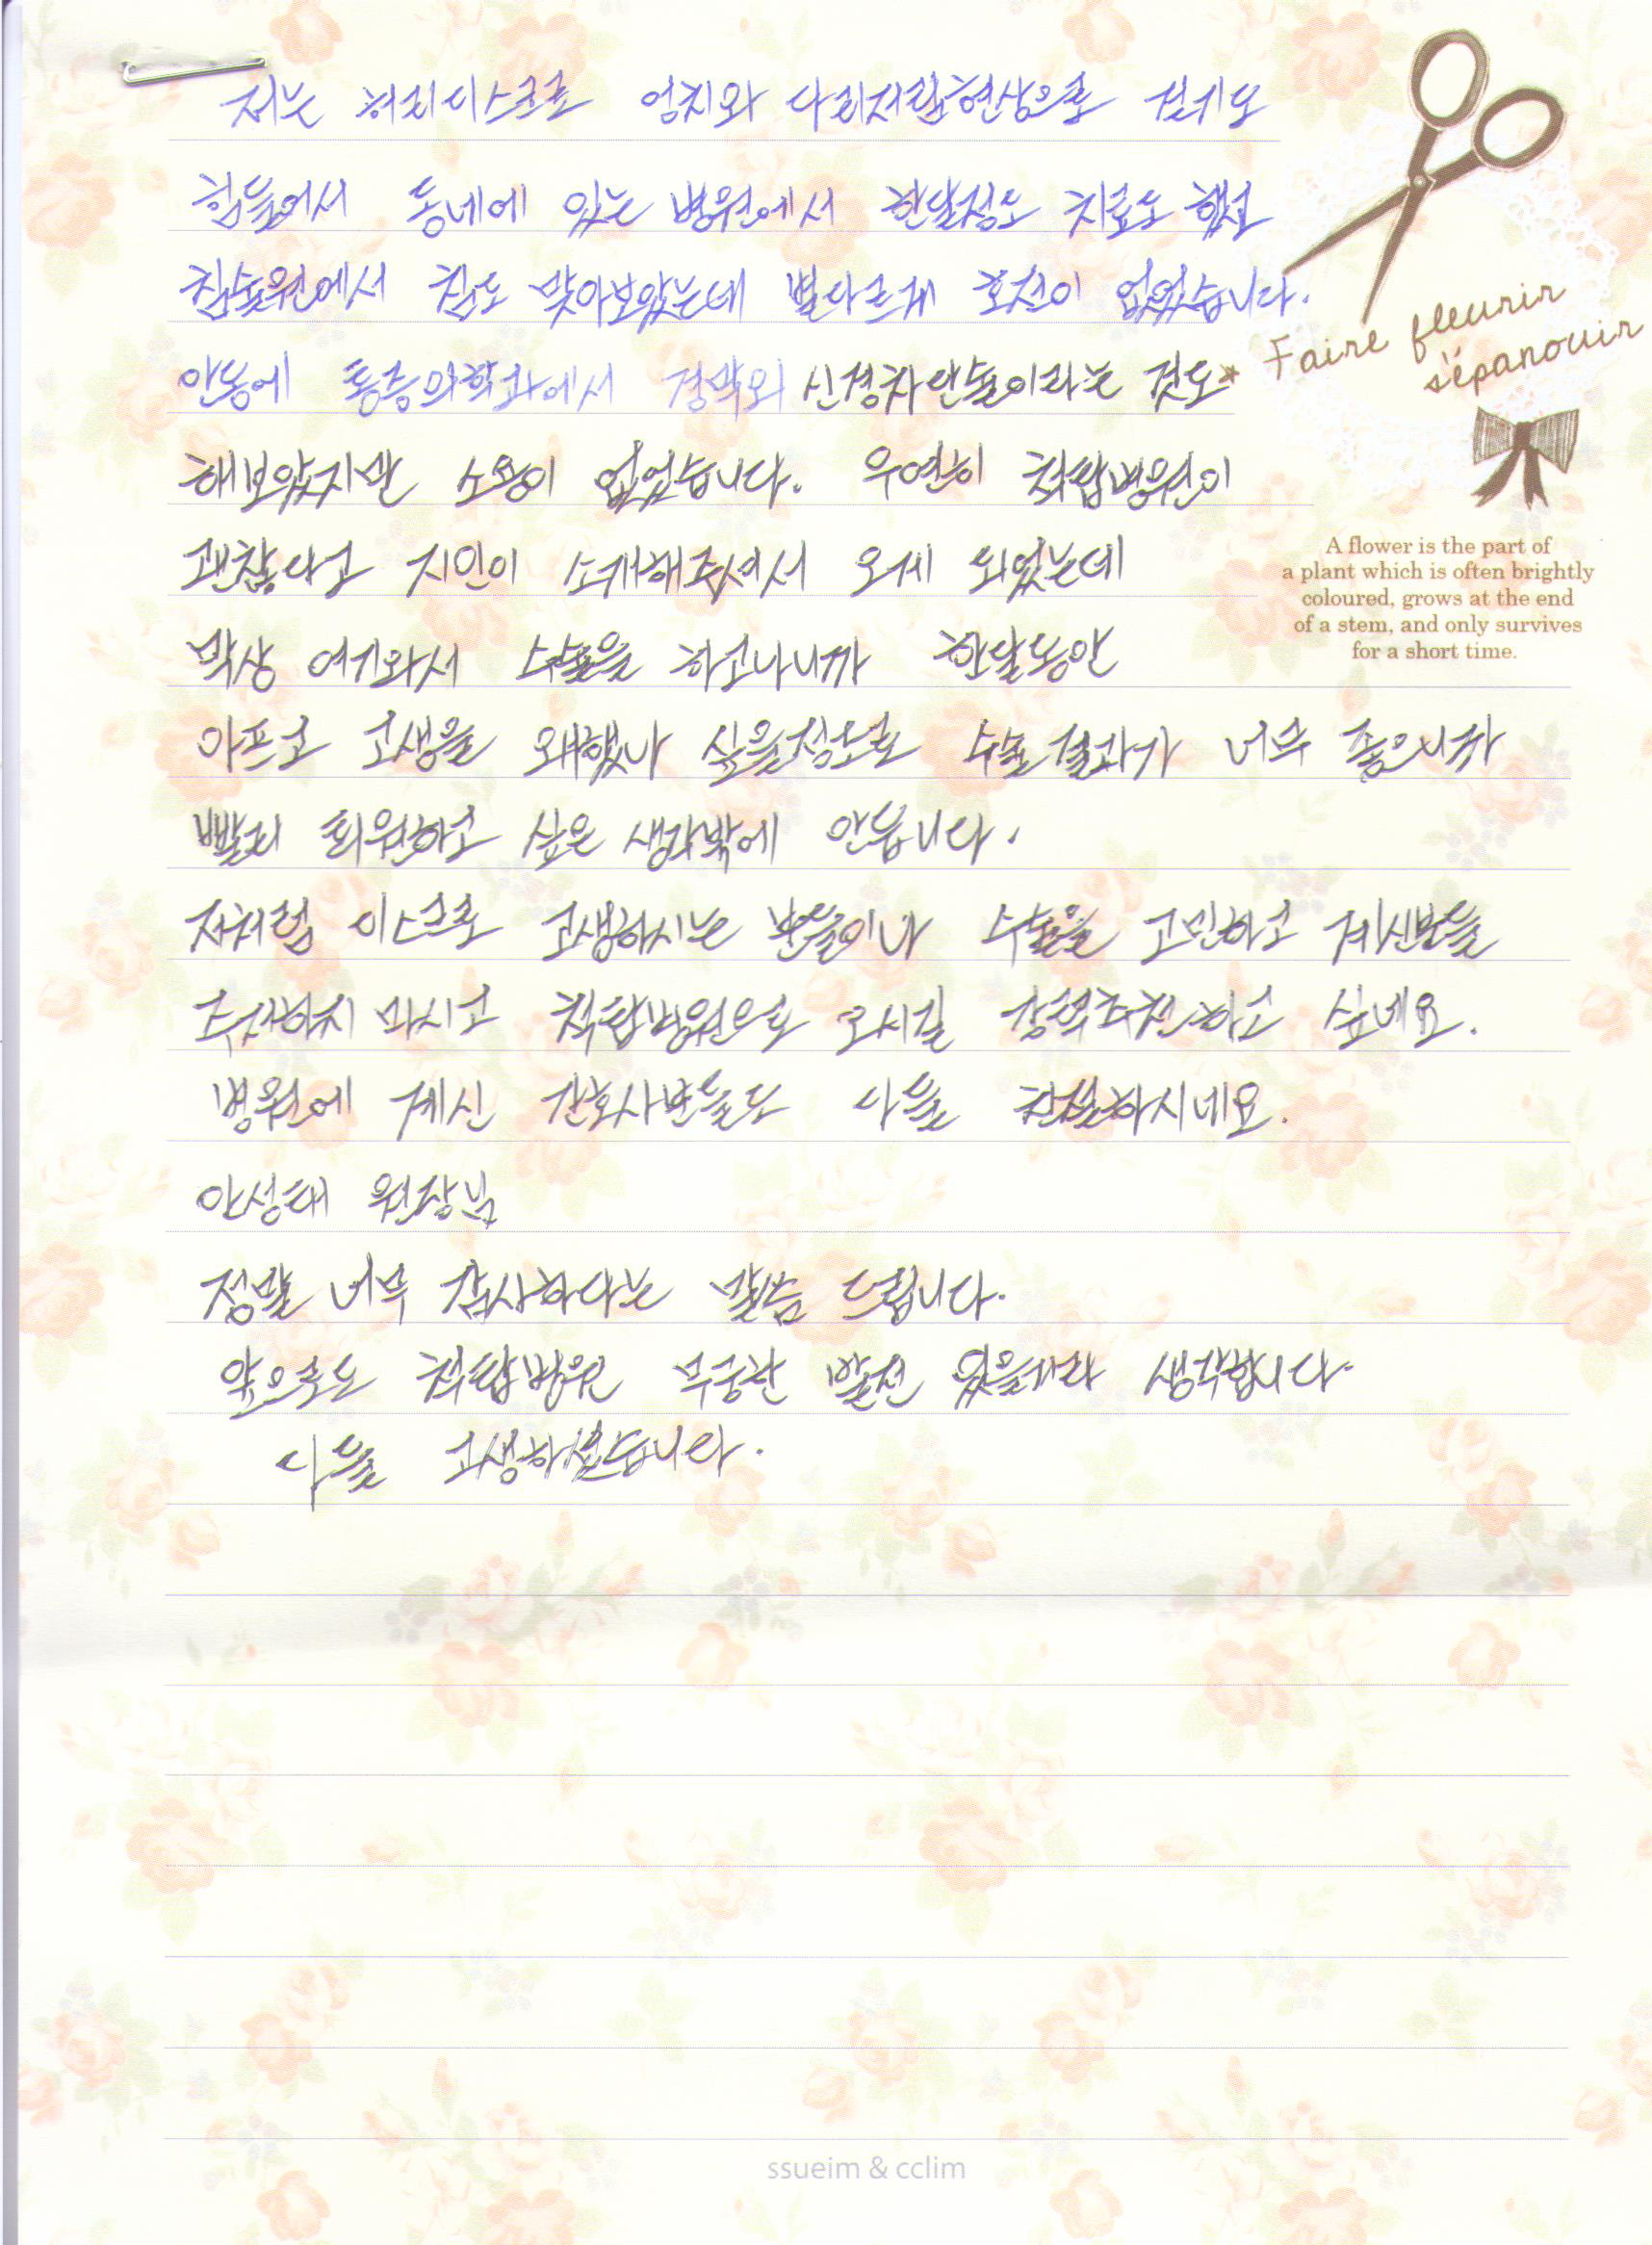 저는 허리디스크로 엉치와 다리저림현상으로 걷기도
힘들어서 동네에 있는 병원에서 한달정도 치료도 했고
침술원에서 침도 맞아보았는데 별다르게 호전이 없었습니다.
안동에 통증의학과에서 경막외 신경차단술이라는 것도
해보았지만 소용이 없었습니다. 우연히 척탑병원이
괜찮다고 지인이 소개해주셔서 오게 되었는데
막상 여기와서 수술을 하고나니까 한달동안
아프고 고생을 왜했나 싶을정도로 수술결과가 너무 좋으니까
빨리 퇴원하고 싶은 생각밖에 안듭니다.
저처럼 디스크로 고생하시는 분들이나 수술을 고민하고 계신분들
주저하지 마시고 척탑병원으로 오시길 강력추천하고 싶네요.
병원에 계신 간호사분들도 다들 친절하시네요.
안성태 원장님
정말 너무 감사하다는 말씀 드립니다.
앞으로도 척탑병원 무궁한 발전 있을거라 생각합니다.
다들 고생하셨습니다.
Faire fleurir
s'épanouir
A flower is the part of
a plant which is often brightly
coloured, grows at the end
of a stem, and only survives
for a short time.
ssueim & cclim